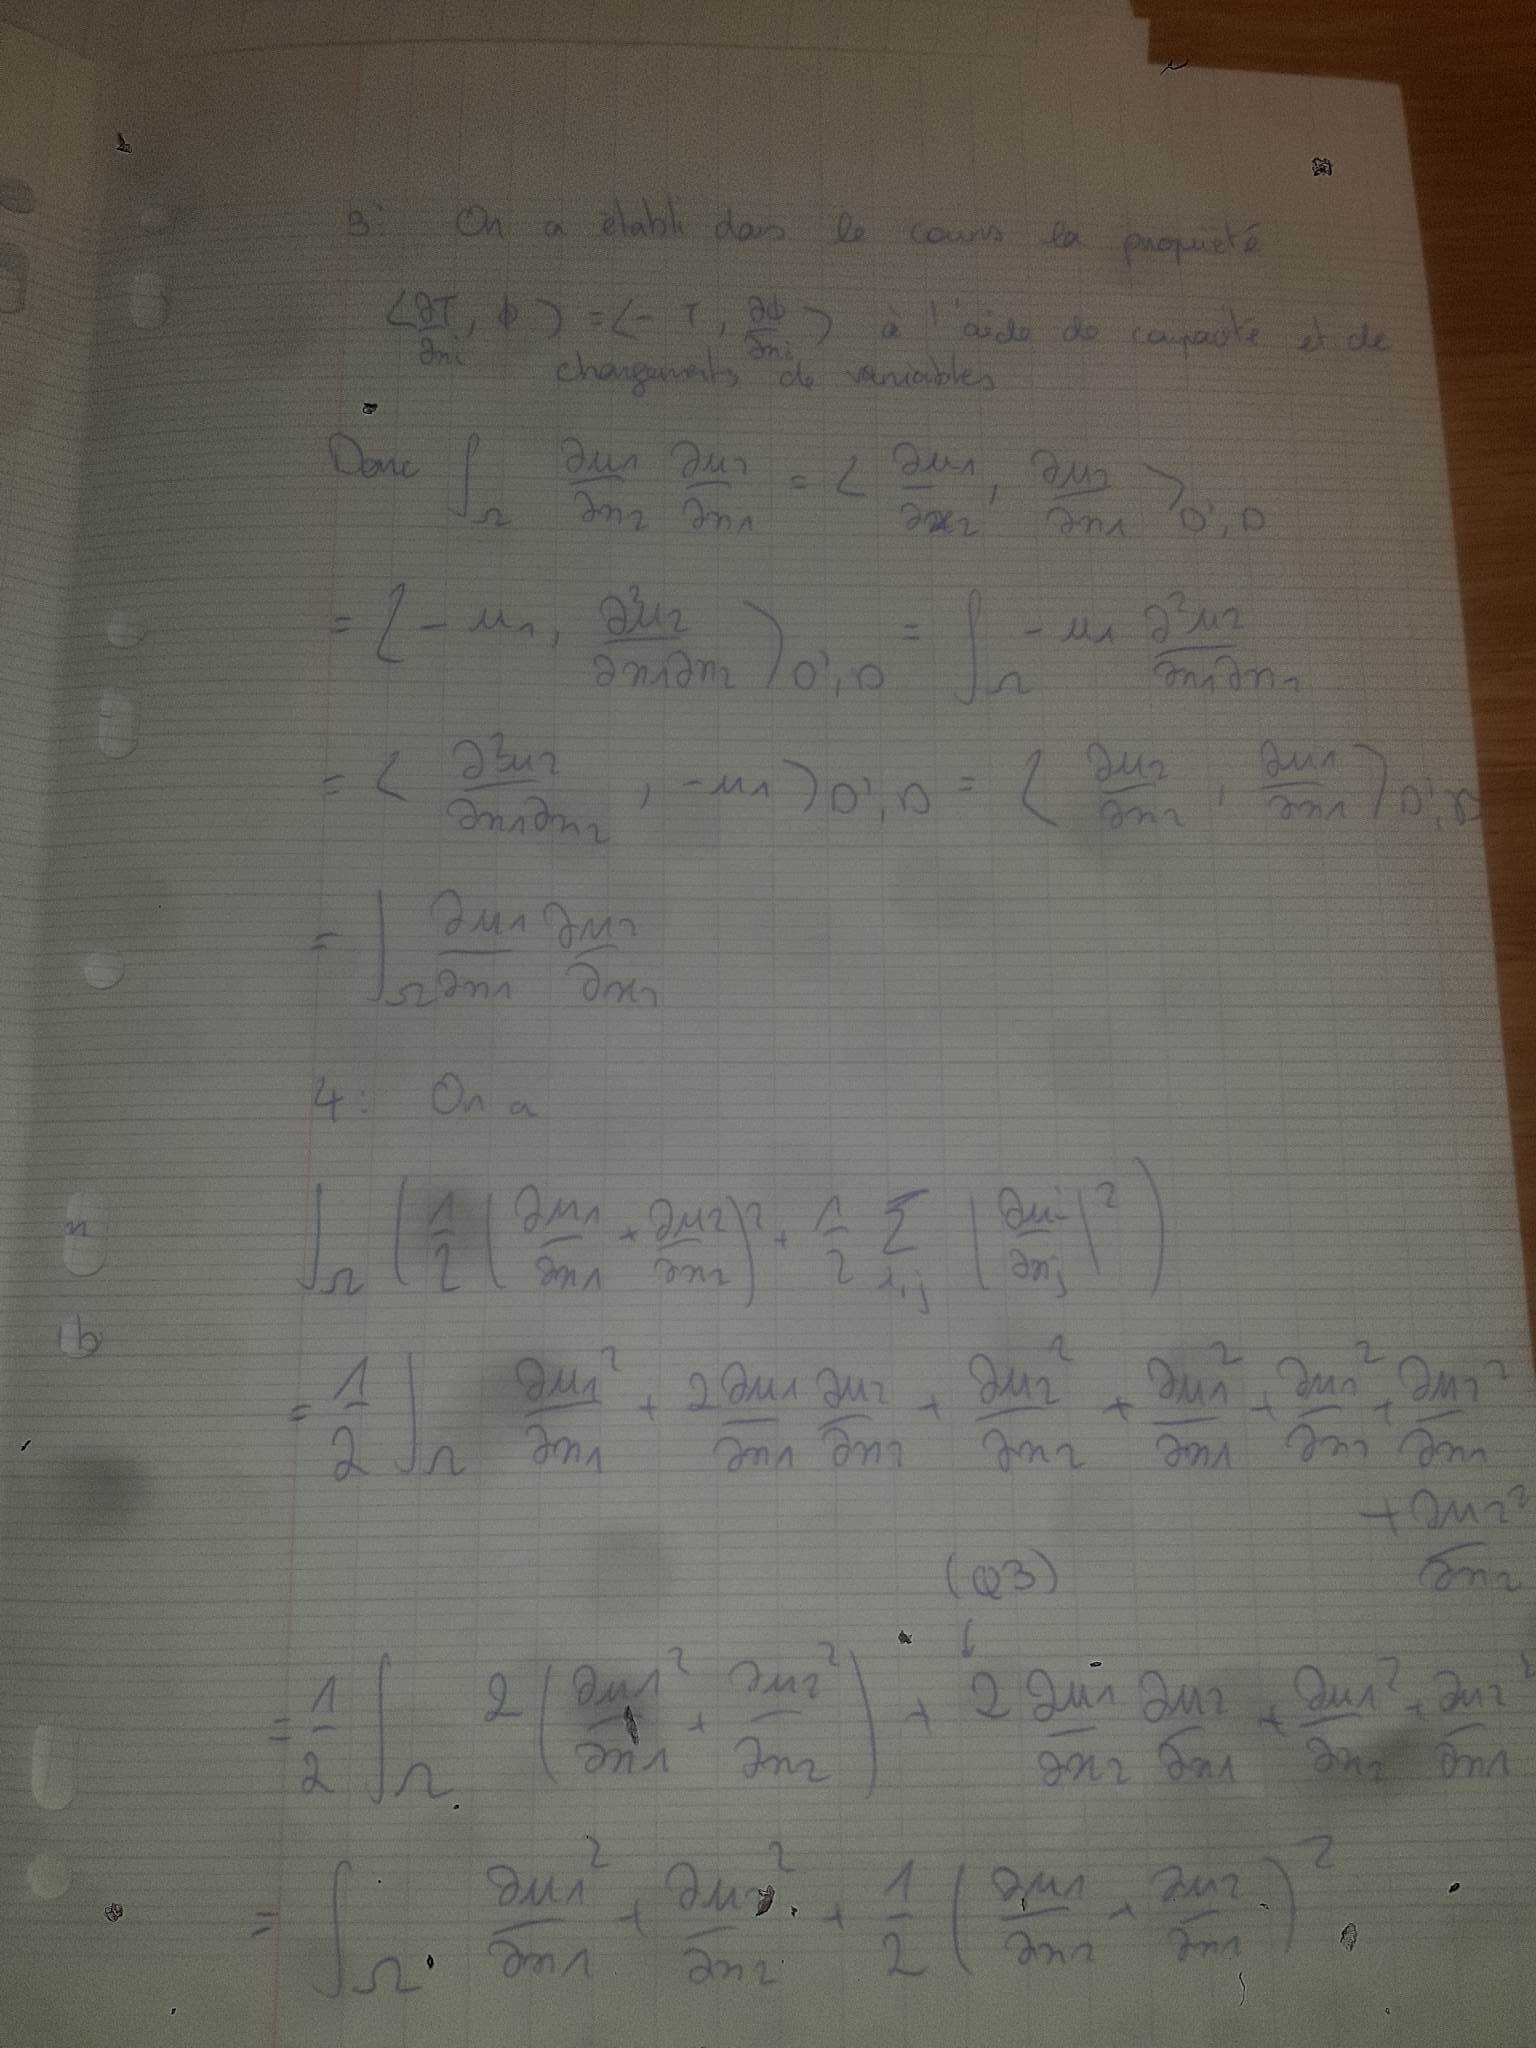 3: On a établi dans le cours la propriété
⟨∂T/∂xi, ϕ⟩ = ⟨- T, ∂ϕ/∂xi⟩ à l'aide de compacité et de
changements de variables
Donc ∫_Ω ∂u1/∂x2 ∂u2/∂x1 = ⟨∂u1/∂x2, ∂u2/∂x1⟩_D',D
= ⟨- u1, ∂²u2/∂x1∂x2⟩_D',D = ∫_Ω - u1 ∂²u2/∂x1∂x2
= ⟨∂²u2/∂x1∂x2, -u1⟩_D',D = ⟨∂u2/∂x2, ∂u1/∂x1⟩_D',D
= ∫_Ω ∂u1/∂x1 ∂u2/∂x2
4: On a
∫_Ω (1/2 (∂u1/∂x1 + ∂u2/∂x2)² + 1/2 Σ_i,j (∂ui/∂xj)²)
= 1/2 ∫_Ω ∂u1/∂x1² + 2 ∂u1/∂x1 ∂u2/∂x2 + ∂u2/∂x2² + ∂u1/∂x1² + ∂u1/∂x2² + ∂u2/∂x1²
+ ∂u2/∂x2²
(Q3)
↓
= 1/2 ∫_Ω 2 (∂u1/∂x1² + ∂u2/∂x2²) + 2 ∂u1/∂x2 ∂u2/∂x1 + ∂u1/∂x2² + ∂u2/∂x1²
= ∫_Ω ∂u1/∂x1² + ∂u2/∂x2² + 1/2 (∂u1/∂x2 + ∂u2/∂x1)²